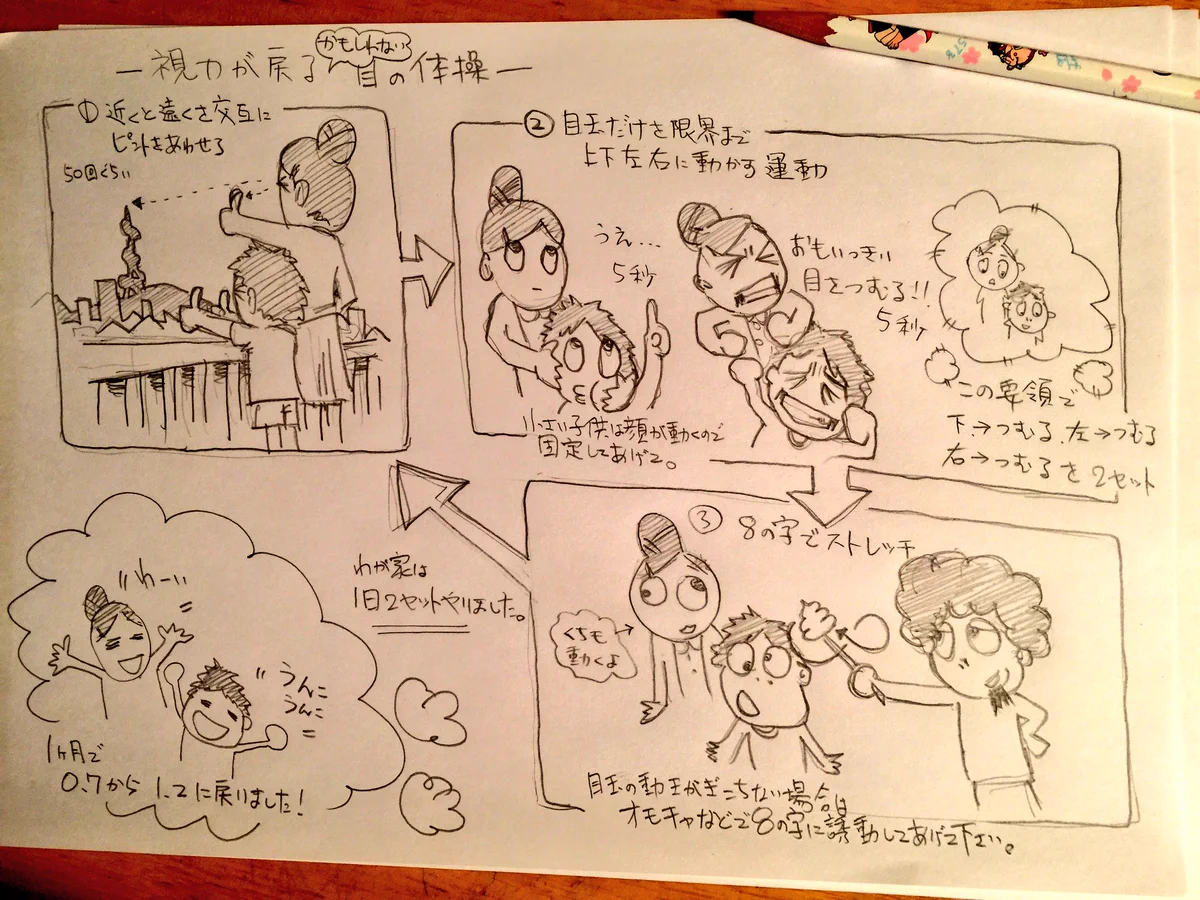 かもしれない
ー視力が戻る目の体操ー
① 近くと遠くを交互に
ピントをあわせる
50回くらい
② 目玉だけを限界まで
上下左右に動かす運動
うえ…
5秒
おもいっきい
目をつむる!!
5秒
小さい子供は顔が動くので
固定してあげて。
この要領で
下→つむる、左→つむる
右→つむるを2セット
③ 8の字でストレッチ
くちも
動くよ
目玉の動きがぎこちない場合は
オモチャなどで8の字に誘動してあげて下さい。
わが家は
1日2セットやりました。
わーい
うんこ
うんこ
1ヶ月で
0.7から1.2に戻りました!